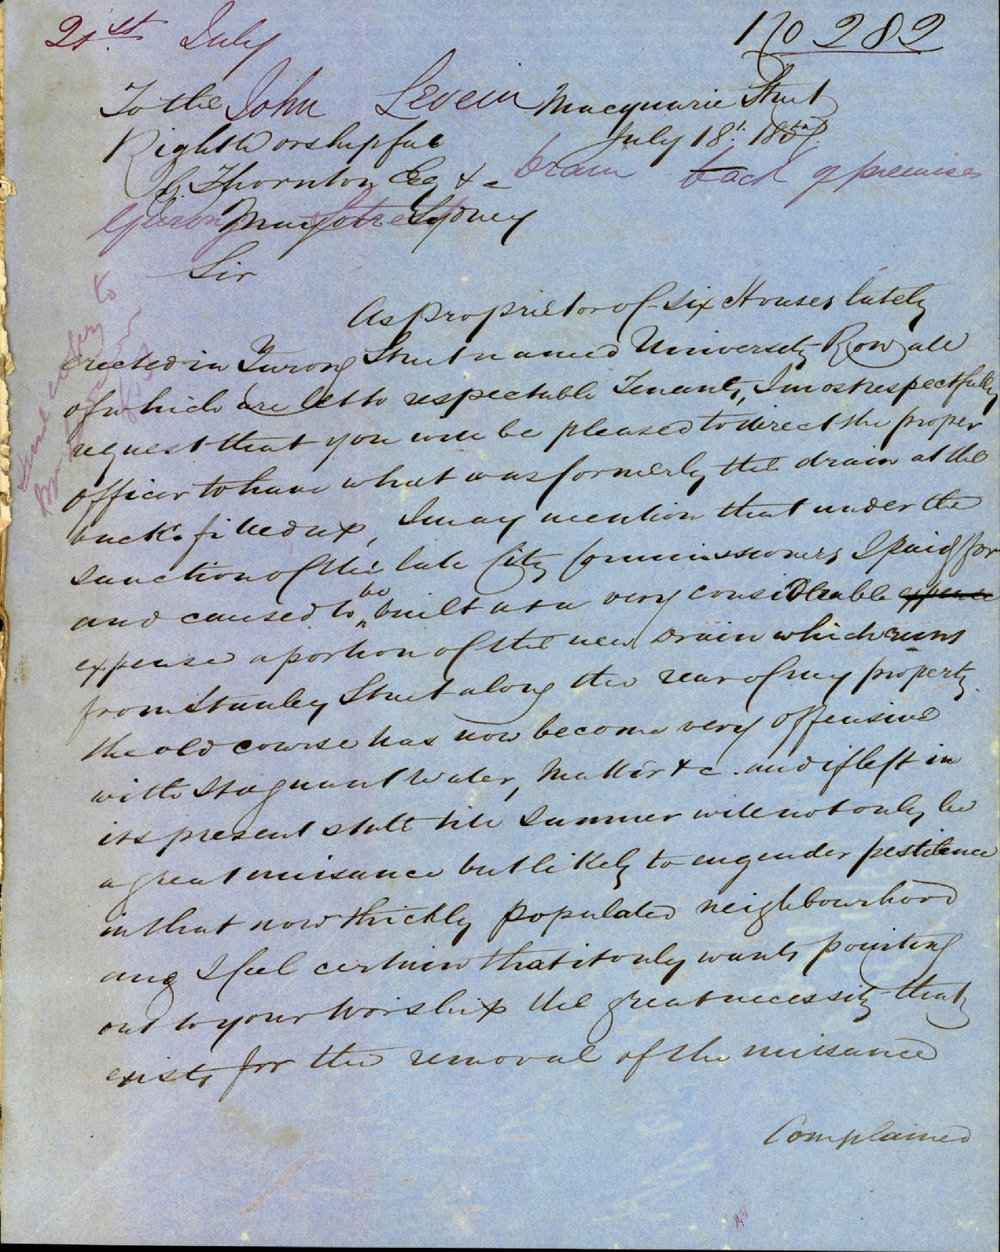 21st July
No 282
To the John Levein Macquarie Street
Right Worshipful July 18t. 1857.
G. Thornton Esq &c drain back of premises
Mayor Sydney
Sir
As proprietor of six Houses lately
erected in Yurong Street named University Row all
of which are let to respectable Tenants, I most respectfully
request that you will be pleased to direct the proper
officer to have what was formerly the drain at the
back filled up, I may mention that under the
sanction of the late City Commissioners I paid for
and caused to be built at a very considerable expense
expense a portion of the new drain which runs
from Stanley Street along the rear of my property
the old course has now become very offensive
with stagnant water, matter &c. and if left in
its present state till Summer will not only be
a great nuisance but likely to engender pestilence
in that now thickly populated neighbourhood
and I feel certain that it only wants pointing
out to your Worship the great necessity that
exists for the removal of the nuisance
Complained